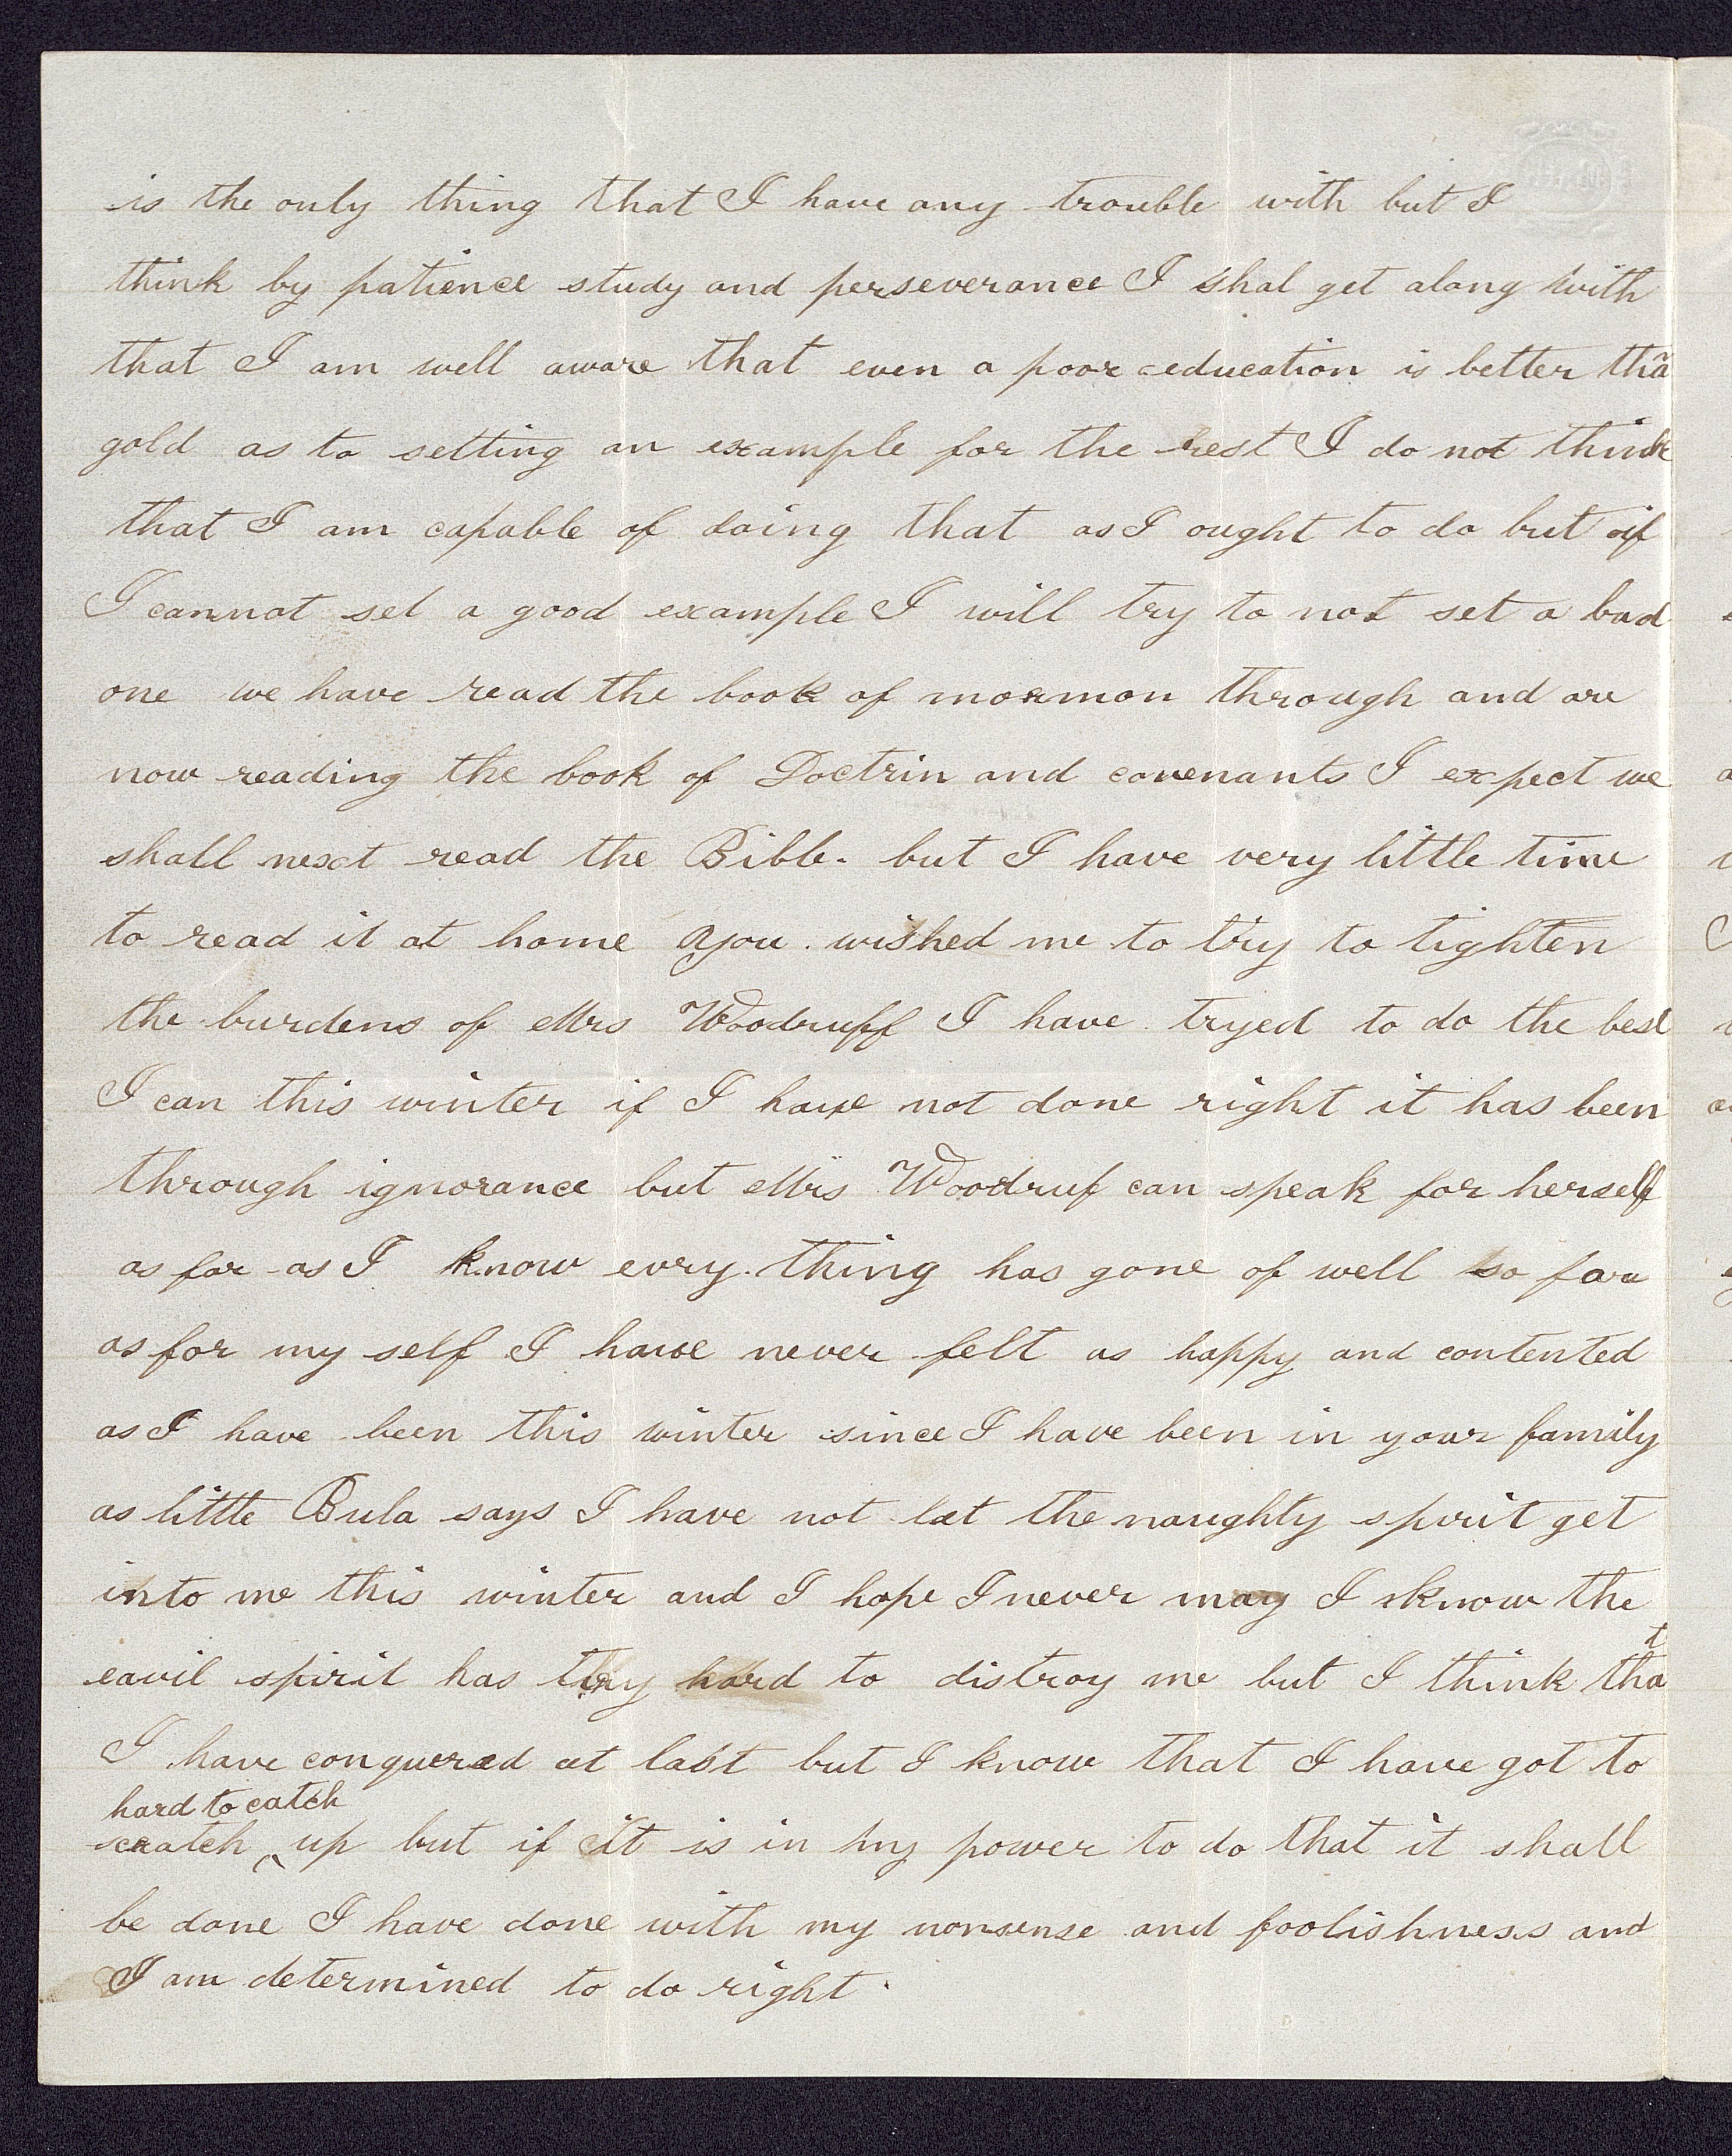 is the only thing that I have any trouble with but I
think by patience study and perseverance I shal get along with
that I am well aware that even a poor education is better thã
gold as to setting an example for the rest I do not think
that I am capable of doing that as I ought to do but if
I cannot set a good example I will try to not set a bad
one we have read the book of mormon through and are
now reading the book of Doctrin and covenants I expect we
shall next read the Bible. but I have very little time
to read it at home you wished me to try to tighten
the burdens of Mrs Woodruff I have tryed to do the best
I can this winter if I have not done right it has been
through ignorance but Mrs Woodruf can speak for herself
as far as I know evry thing has gone of well so far
as for my self I have never felt as happy and contented
as I have been this winter since I have been in your family
as little Bula says I have not let the naughty spirit get
into me this winter and I hope I never may I know the
eavil spirit has try hard to distroy me but I think that
I have conquered at last but I know that I have got to
hard to catch
scratch ‸ up but if it is in my power to do that it shall
be done I have done with my nonsense and foolishness and
I am determined to do right.